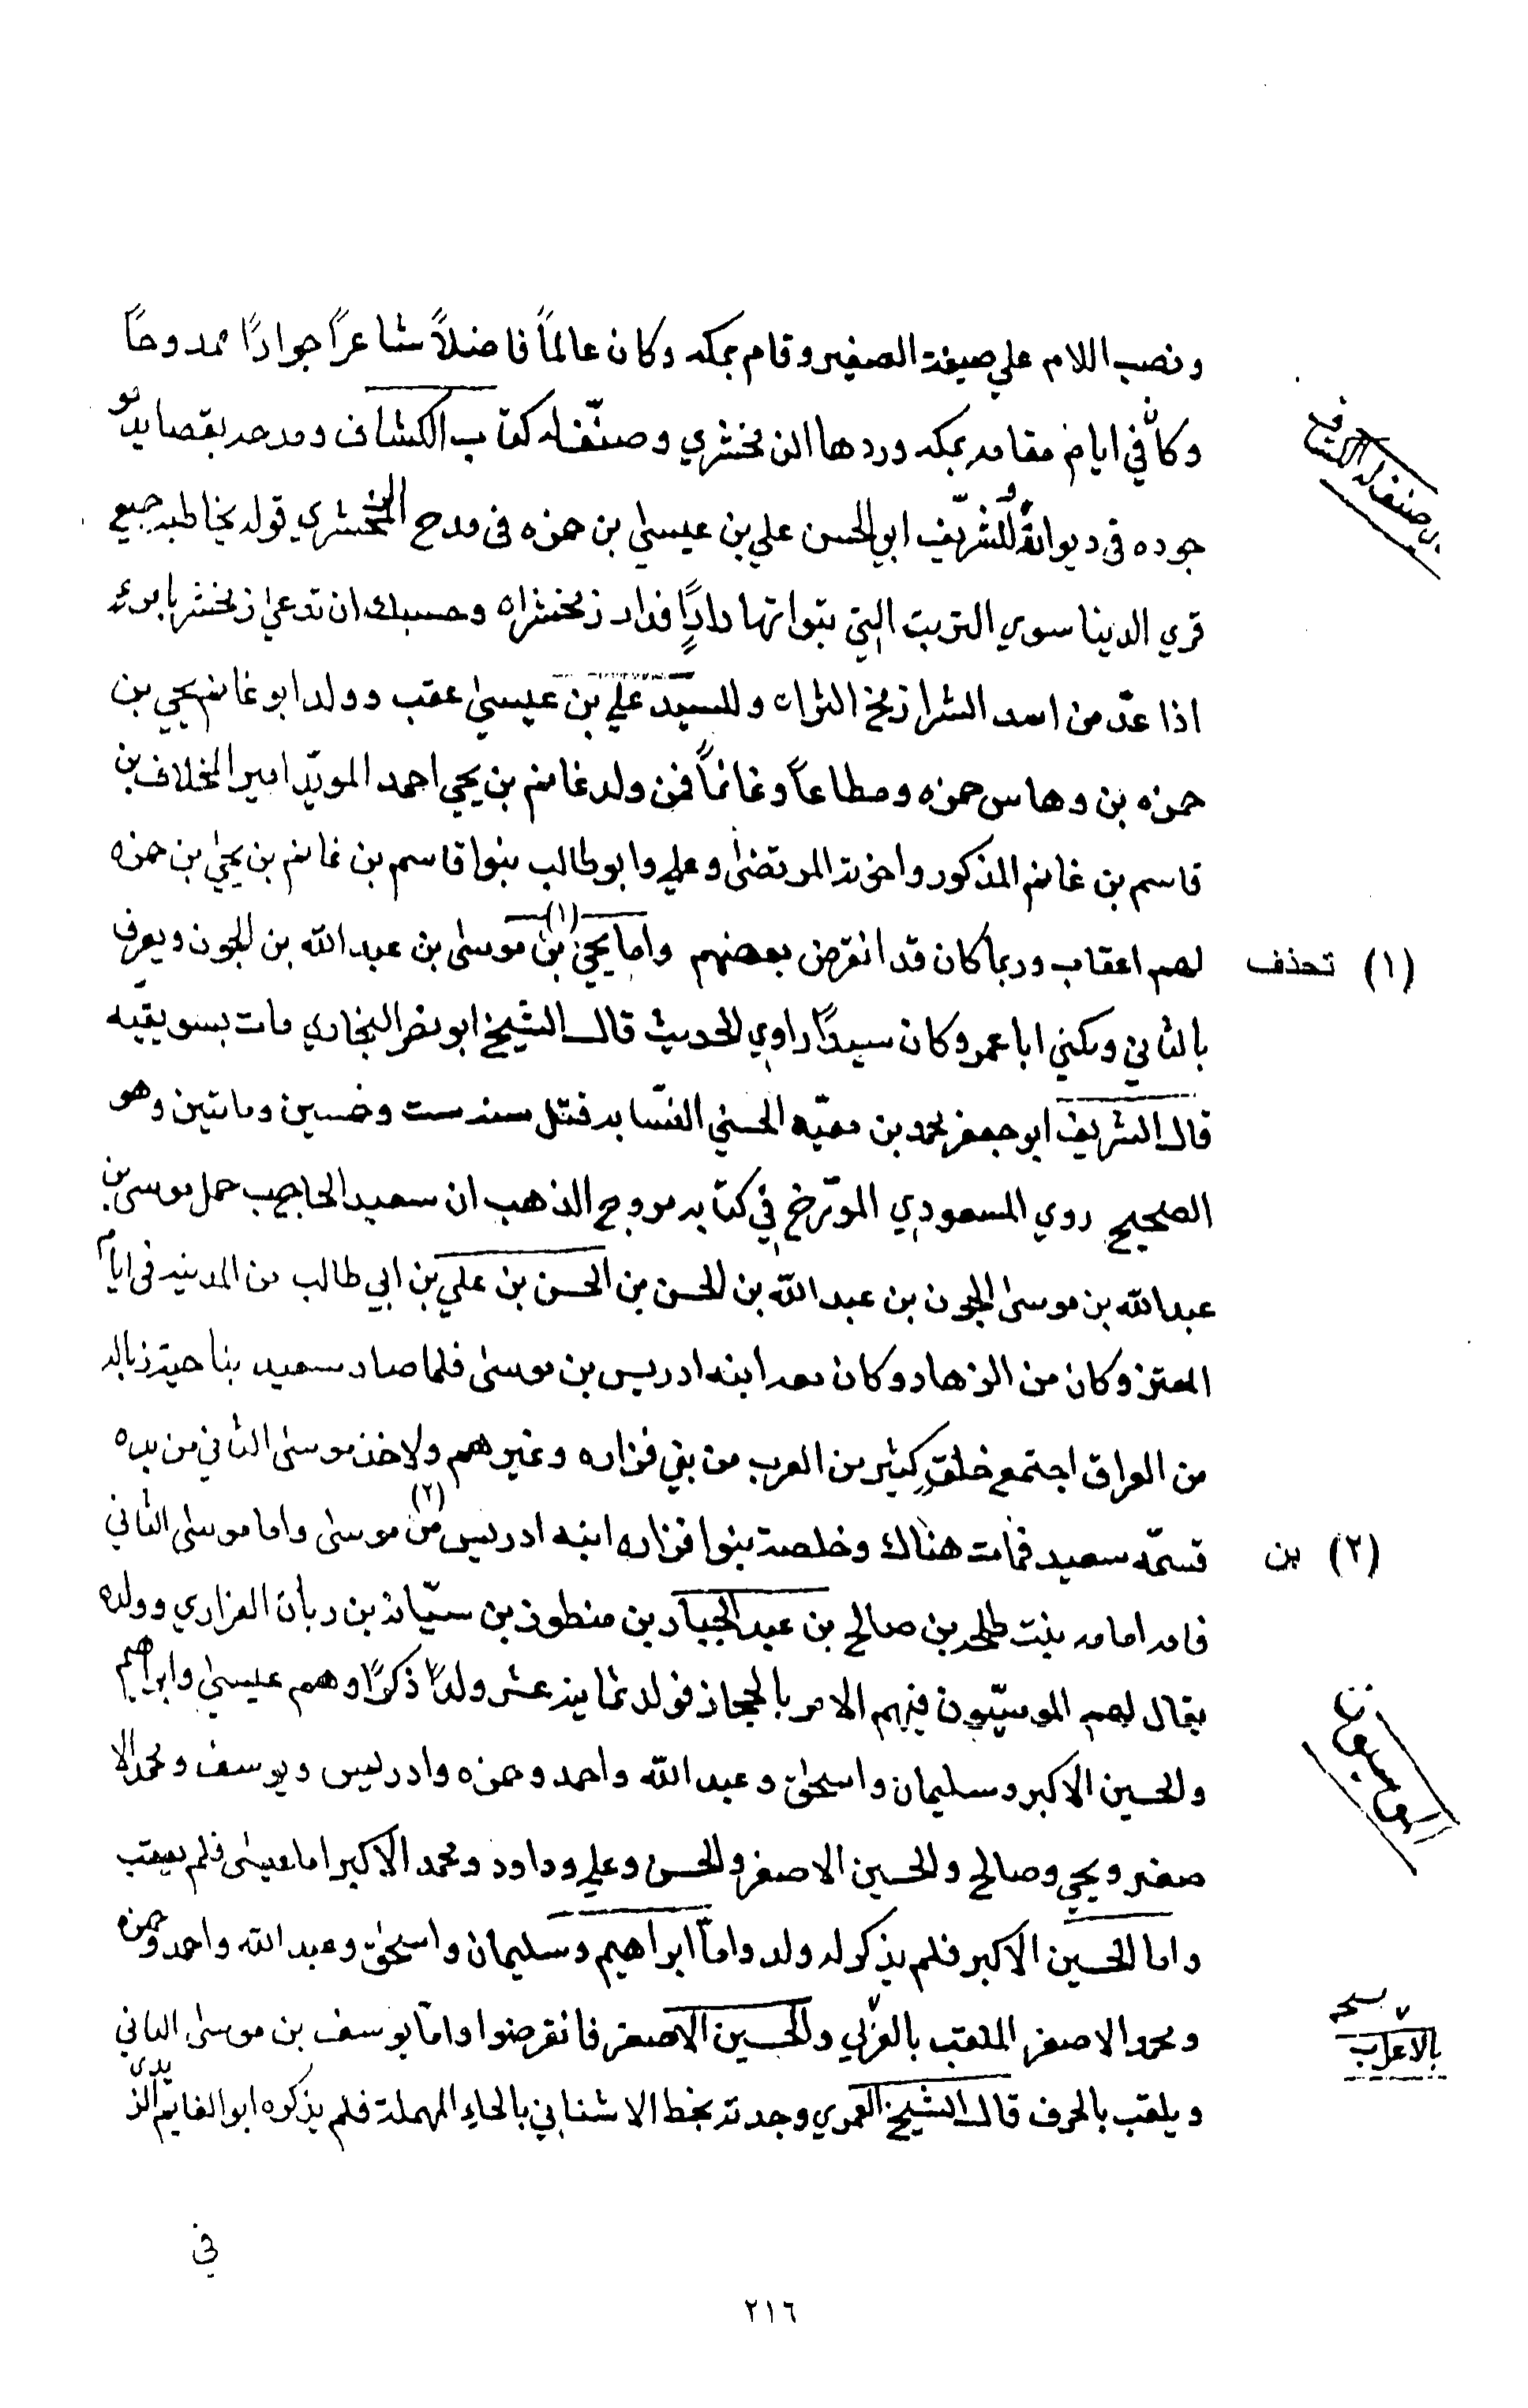 ونصب اللام علي صيغة الصغير وقام بمكه وكان عالماً فاضلاً شاعراً جوادًا ممدوحًا
وكان في ايام مقامه بمكه وردها الزمخشري وصنّف له كتاب الكشاف ومدحه بقصايد
جوده في ديوانه وللشريف ابي الحسن علي بن عيسى بن حمزه في مدح الزمخشري قوله يخاطبه جميع
قري الدنيا سوي التربة التي تبواتها دارًا فداء زمخشراه وحسبك ان تدعي زمخشر بامرئ
اذا عدّ من اسد الشرا زمخ الشراء وللسيّد علي بن عيسى عقب وولد ابو غانم يحيي بن
حمزه بن وهاس حمزه ومطاعاً وغانماً فمن ولد غانم بن يحيي احمد المويّد امير المخلاف بن
قاسم بن غانم المذكور واخوته المرتضى وعلي وابو طالب بنوا قاسم بن غانم بن يحيى بن حمزه
لهم اعقاب وربما كان قد انقرض بعضهم واما يحيى بن (١) موسى بن عبد الله بن الجون ويعرف
(١) تحذف
بالثاني ويكني ابا عمر وكان سيدًا راوي الحديث قال الشيخ ابو نصر البخاري مات بسويقيه
قال الشريف ابو جعفر محمد بن معيّه الحسني النسّابه قتل سنه ست وخمسين وماتين وهو
الصحيح روي المسعودي المورّخ في كتابه مروج الذهب ان سعيد الحاجب حمل موسى بن
عبد الله بن موسى الجون بن عبد الله بن الحسن بن الحسن بن علي بن ابي طالب من المدينه في ايام
المعتز وكان من الزهاد وكان معه ابنه ادريس بن موسى فلما صار سعيد بناحية زباله
من العراق اجتمع خلقٍ كثير من العرب من بني فزاره وغيرهم ولاخذ موسى الثاني من يده
فسمّه سعيد فمات هناك وخلصة بنوا فزاره ابنه ادريس من (٢) موسى واما موسى الثاني
(٢) بن
فامه امامه بنت طلحه بن صالح بن عبد الجبار بن منطور بن سيّان بن ربان الفزاري وولده
يقال لهم الموسيّون فيهم الامر بالحجاز فولد ثمانية عشر ولدًا ذكرًا وهم عيسى وابراهيم
الموسيون
والحسين الاكبر وسليمان واسحق وعبد الله واحمد وحمزه وادريس ويوسف ومحمد الا
صغر ويحيي وصالح والحسين الاصغر والحسن وعلي وداود ومحمد الاكبر اما عيسى فلم يعقب
واما الحسين الاكبر فلم يذكر له ولد وامّا ابراهيم وسليمان واسحق وعبد الله واحمد وحمزه
ومحمد الاصغر الملقب بالعربي والحسين الاصغر فانقرضوا وامّا يوسف بن موسى الثاني
بالاعرابي
ويلقب بالحرف قال الشيخ العمري وجدته بخط الاشناني بالحاء المهملة فلم يذكره ابو الغنايم الزيدي
في
٢١٦